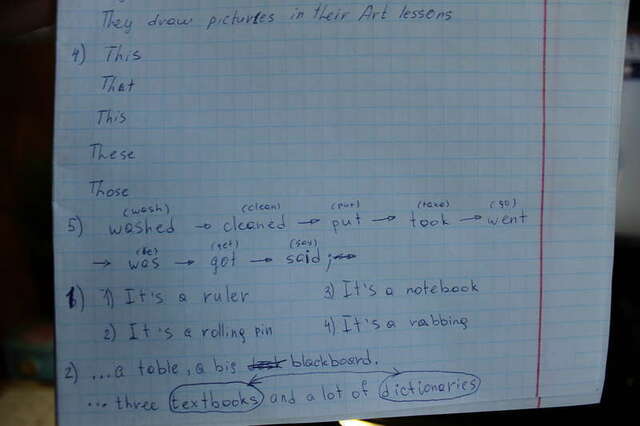 They draw pictures in their Art lessons
4) This
That
This
These
Those
(wash) (clean) (put) (take) (go)
5) washed → cleaned → put → took → went
(be) (get) (say)
→ was → got → said;
1) 1) It's a ruler 3) It's a notebook
2) It's a rolling pin 4) It's a rabbing
2) ...a table, a big blackboard.
... three textbooks and a lot of dictionaries